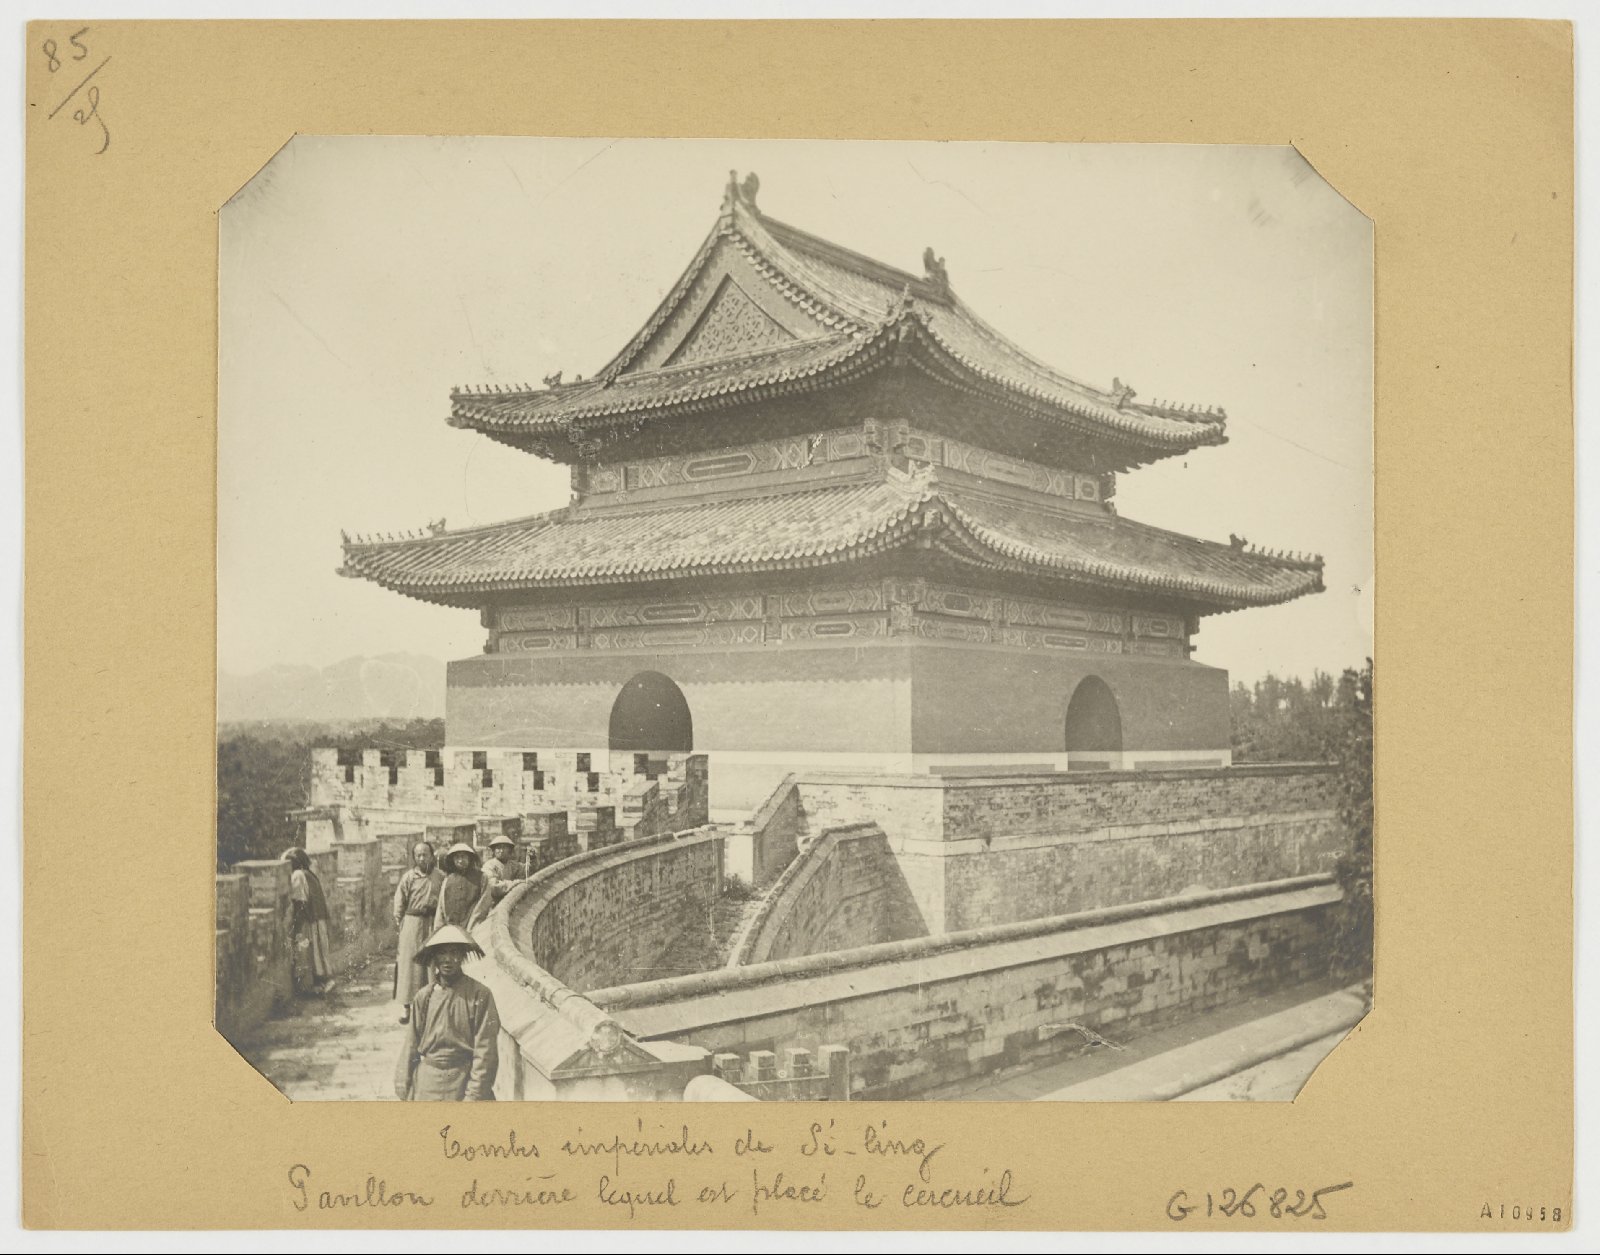 85
25
Tombes impériales de Si-ling
Pavillon derrière lequel est placé le cercueil
G126825
A10958